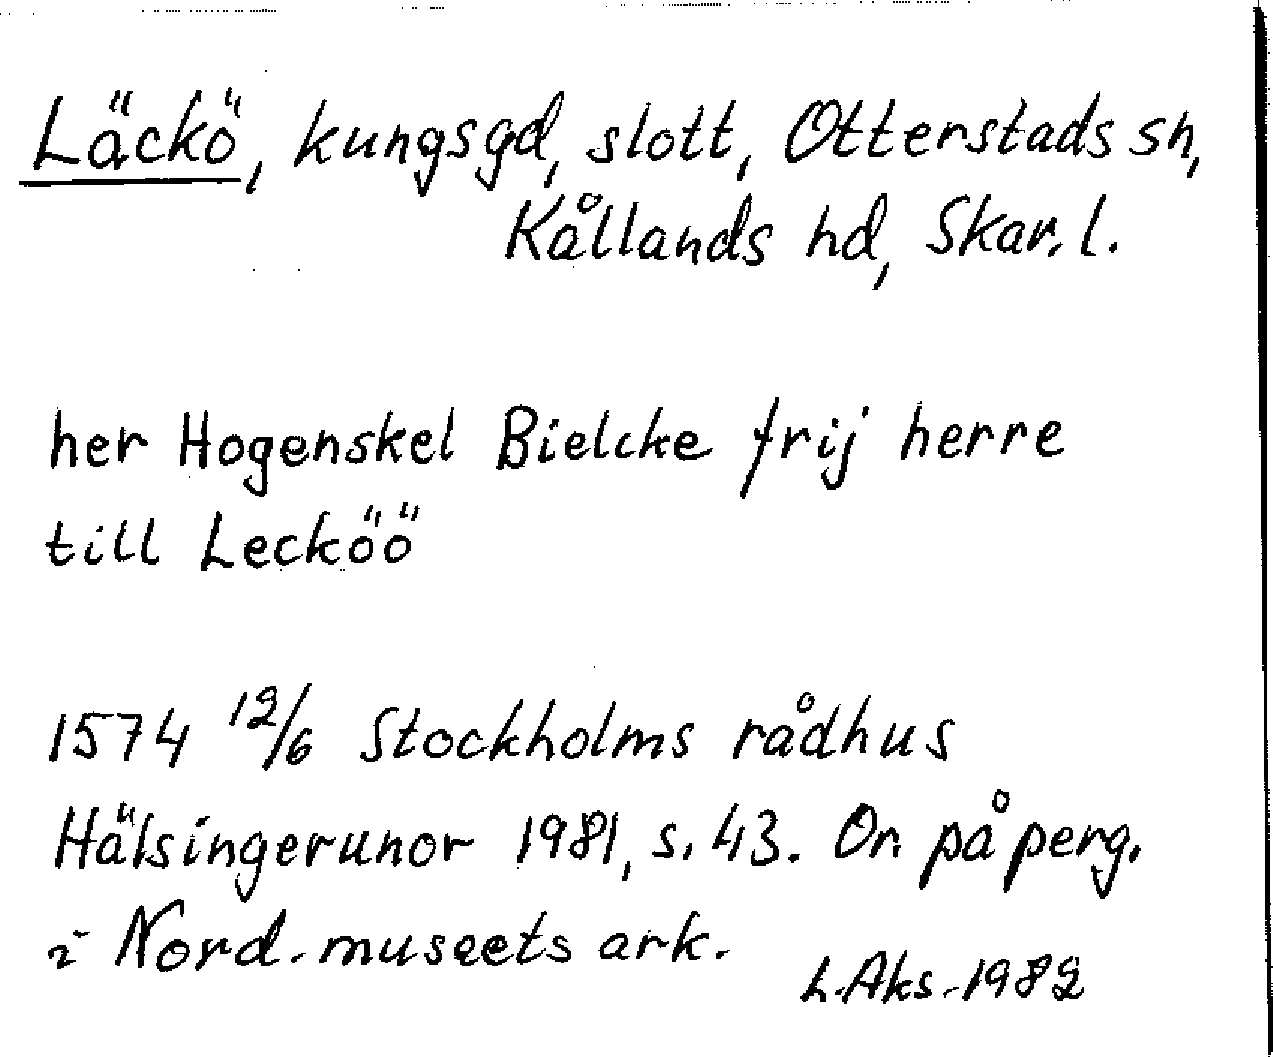 Läckö, kungsgd, slott, Otterstads sn,
Kållands hd, Skar. l.
her Hogenskel Bielcke frij herre
till Lecköö
1574 12/6 Stockholms rådhus
Hälsingerunor 1981, s. 43. Or. på perg.
i Nord. museets ark.
L. Aks. -1982